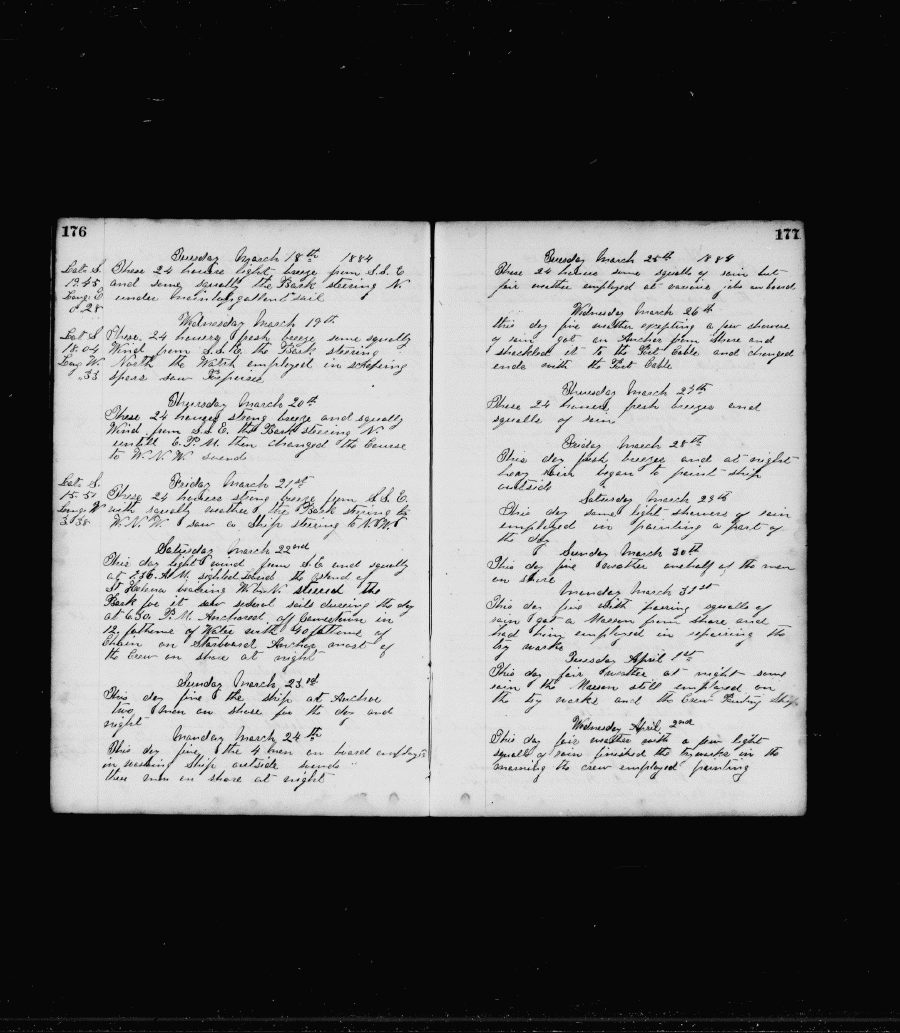 176
Tuesday March 18th 1884
Lat. S. These 24 houers light breeze from S.S.E
19.45 and some squalls the Bark steering N
Long. E under maintopgallant sail
0.28
Wednesday March 19th
Lat S These 24 houers fresh breeze some squally
18.04 Wind from S.S.E. the Bark steering
Long W. North the Watch employed in scraping
.33 spars saw Porpoises
Thursday March 20th
These 24 houers strong breeze and squally
Wind from S.S.E. the Bark steering N
untill 6 P.M. then changed the Course
to W.N.W.
Friday March 21st
Lat. S. These 24 houers strong breeze from S.S.E.
15.51 with squally weather the Bark steering to
Long. W W.N.W. saw a Ship steering to N.W.
3.38
Saturday March 22nd
This day light wind from S.E and squally
at A.M. sighted the Island of
St Helena bearing W by N steered the
Bark for it saw several sails dureing the day
at 6.30 P.M. Anchored off in
12 fathoms of Water with 40 fathoms of
Chain on Starboard Anchor most of
the Crew on shore at night
Sunday March 23rd
This day fine the ship at Anchor
two men on shore for the day and
night
Monday March 24th
This day fine the 4 men on board employed
in washing Ship outside
three men on shore at night
177
Tuesday March 25th 1884
These 24 houers some squalls of rain but
fair weather employed at various jobs on board
Wednesday March 26th
this day fine weather excepting a few showers
of rain got an Anchor from Shore and
shackled it to the Port Cable and changed
ends with the Port Cable
Thursday March 27th
These 24 houers fresh breezes and
squalls of rain
Friday March 28th
This day fresh breezes and at night
heavy rain began to paint ship
outside
Saturday March 29th
This day some light showers of rain
employed in painting a part of
the day
Sunday March 30th
This day fine weather onehalf of the men
on shore
Monday March 31st
This day fine with passing squalls of
rain got a Mason from shore and
had him employed in repairing the
try works
Tuesday April 1st
This day fair weather at night some
rain the Mason still employed on
the try works and the Crew Painting Ship
Wednesday April 2nd
This day fair weather with a few light
squalls of rain finished the tryworks in the
morning the crew employed painting